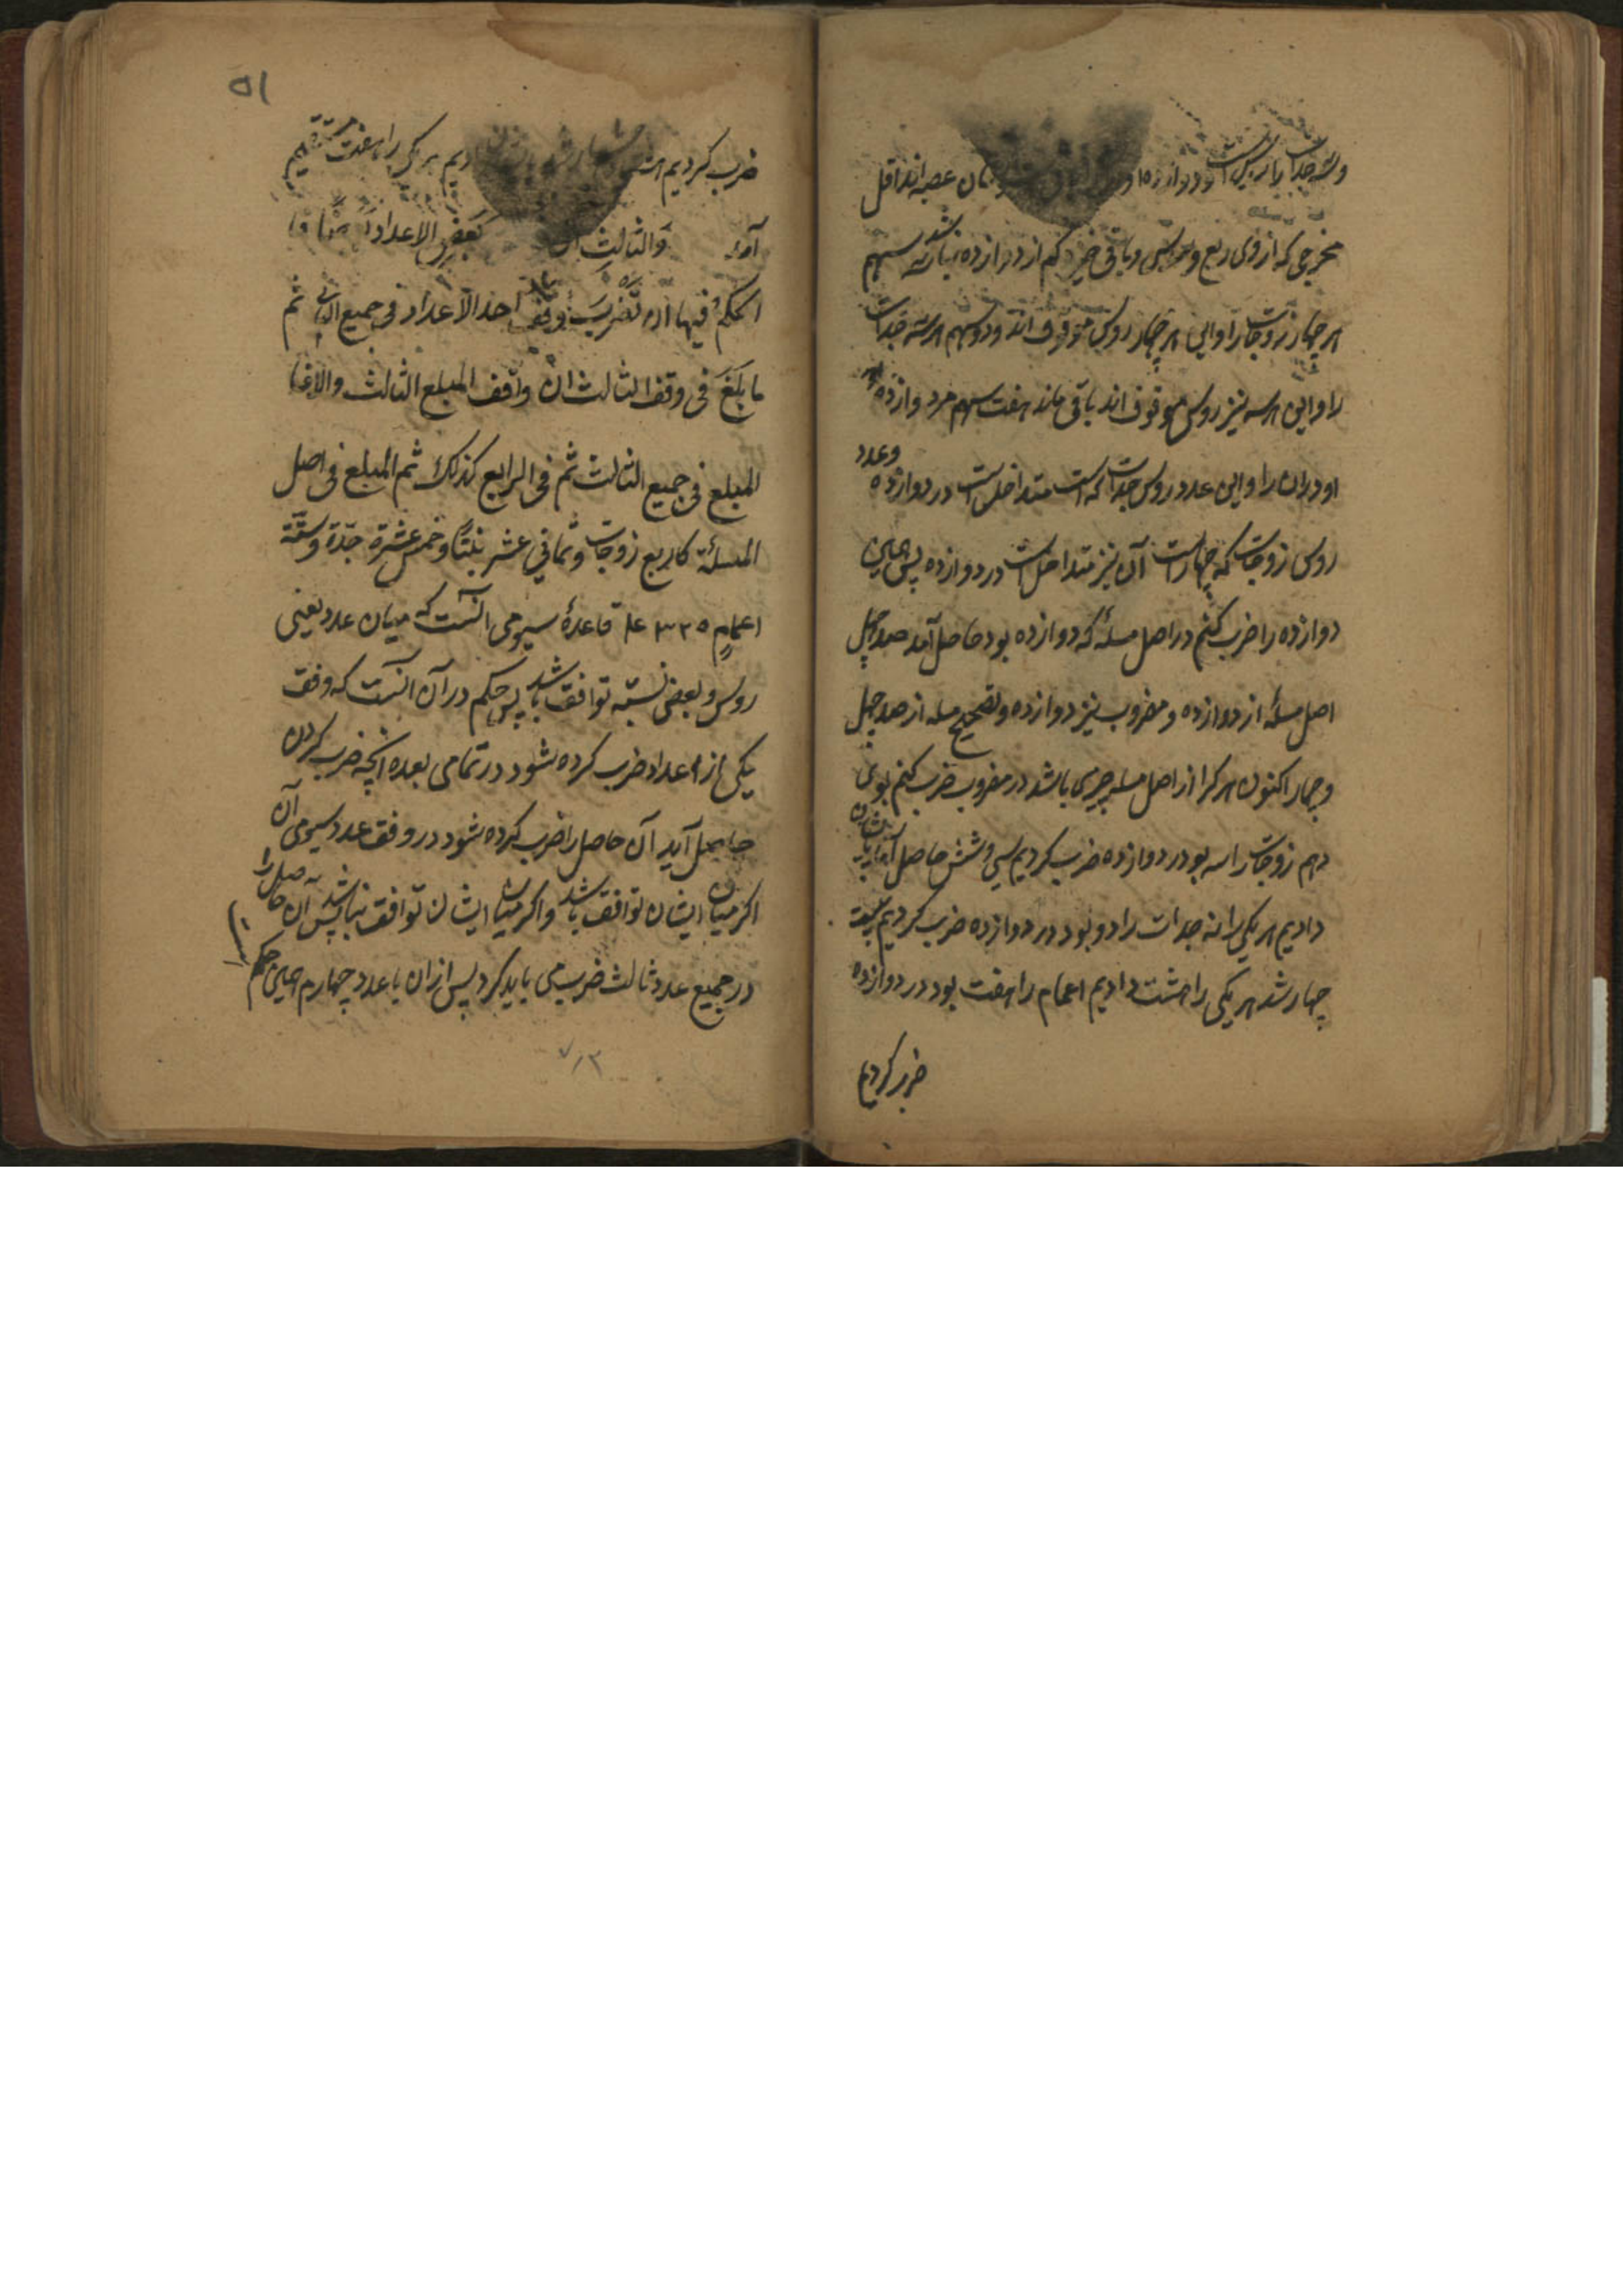 وسه جدات را سدس است و دوازده عصبه اند اقل
مخرجی که ازوی ربع و سدس و باقی خیزد کم از دوازده نباشد سه سهم
هر چهار زوجات را و این هر چهار روس موقوف اند و دو سهم هر سه جدات
را و این هر سه نیز روس موقوف اند باقی ماند هفت سهم مر دوازده
او دران را و این عدد روس جدات که سه است متداخل است در دوازده وعدد
روس زوجات که چهار است آن نیز متداخل است در دوازده پس همین
دوازده را ضرب کنم در اصل مسئله که دوازده بود حاصل آمد صد چهل
اصل مسئله از دوازده و مضروب نیز دوازده و تصحیح مسله از صد چهل
و چهار اکنون هر کرا از اصل مسله چیزی باشد در مضروب ضرب کنم بوی
دهم زوجات را سه بود در دوازده ضرب کردیم سی و شش حاصل آمد بایشان
دادیم هر یکی را نه جدات را دو بود در دوازده ضرب کردیم بیست
چهار شد هر یکی را هشت دادیم اعمام را هفت بود در دوازده
ضرب کردیم
۵۱
ضرب کردیم هر یکی را هفت
آمد والثالث ان بعض الاعداد
الحکم فیها ان تضرب وفق احد الاعداد فی جمیع الثانی ثم
ما بلغ فی وفق الثالث ان وافق المبلغ الثالث والا فا
المبلغ فی جمیع الثالث ثم فی الرابع کذلک ثم المبلغ فی اصل
المسئلة کاربع زوجات وثمانی عشر بنتا وخمس عشرة جدة وستة
اعمام قاعدهٔ سیومی آنست که میان عدد یعنی
روس و بعض نسبته توافق باشد پس حکم در آن آنست که وفق
یکی از اعداد ضرب کرده شود در تمامی بعده آنچه ضرب کردن
حاصل آید آن حاصل را ضرب کرده شود در وفق عدد سیومی آن
اکر میان ایشان توافق باشد و اکر میان ایشان توافق نباشد پس آن حاصل را
در جمیع عدد ثالث ضرب می باید کرد پس ازان با عدد چهارم همین حکم